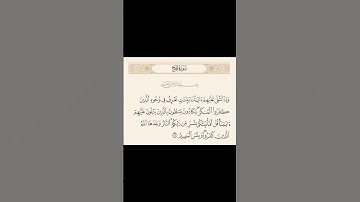 سُورَةُ الحَجِّ
بِسْمِ اللَّهِ الرَّحْمَٰنِ الرَّحِيمِ
وَإِذَا تُتْلَىٰ عَلَيْهِمْ ءَايَٰتُنَا بَيِّنَٰتٍ تَعْرِفُ فِى وُجُوهِ ٱلَّذِينَ
كَفَرُوا۟ ٱلْمُنكَرَ يَكَادُونَ يَسْطُونَ بِٱلَّذِينَ يَتْلُونَ عَلَيْهِمْ
ءَايَٰتِنَا قُلْ أَفَأُنَبِّئُكُم بِشَرٍّ مِّن ذَٰلِكُمُ ٱلنَّارُ وَعَدَهَا ٱللَّهُ
ٱلَّذِينَ كَفَرُوا۟ وَبِئْسَ ٱلْمَصِيرُ